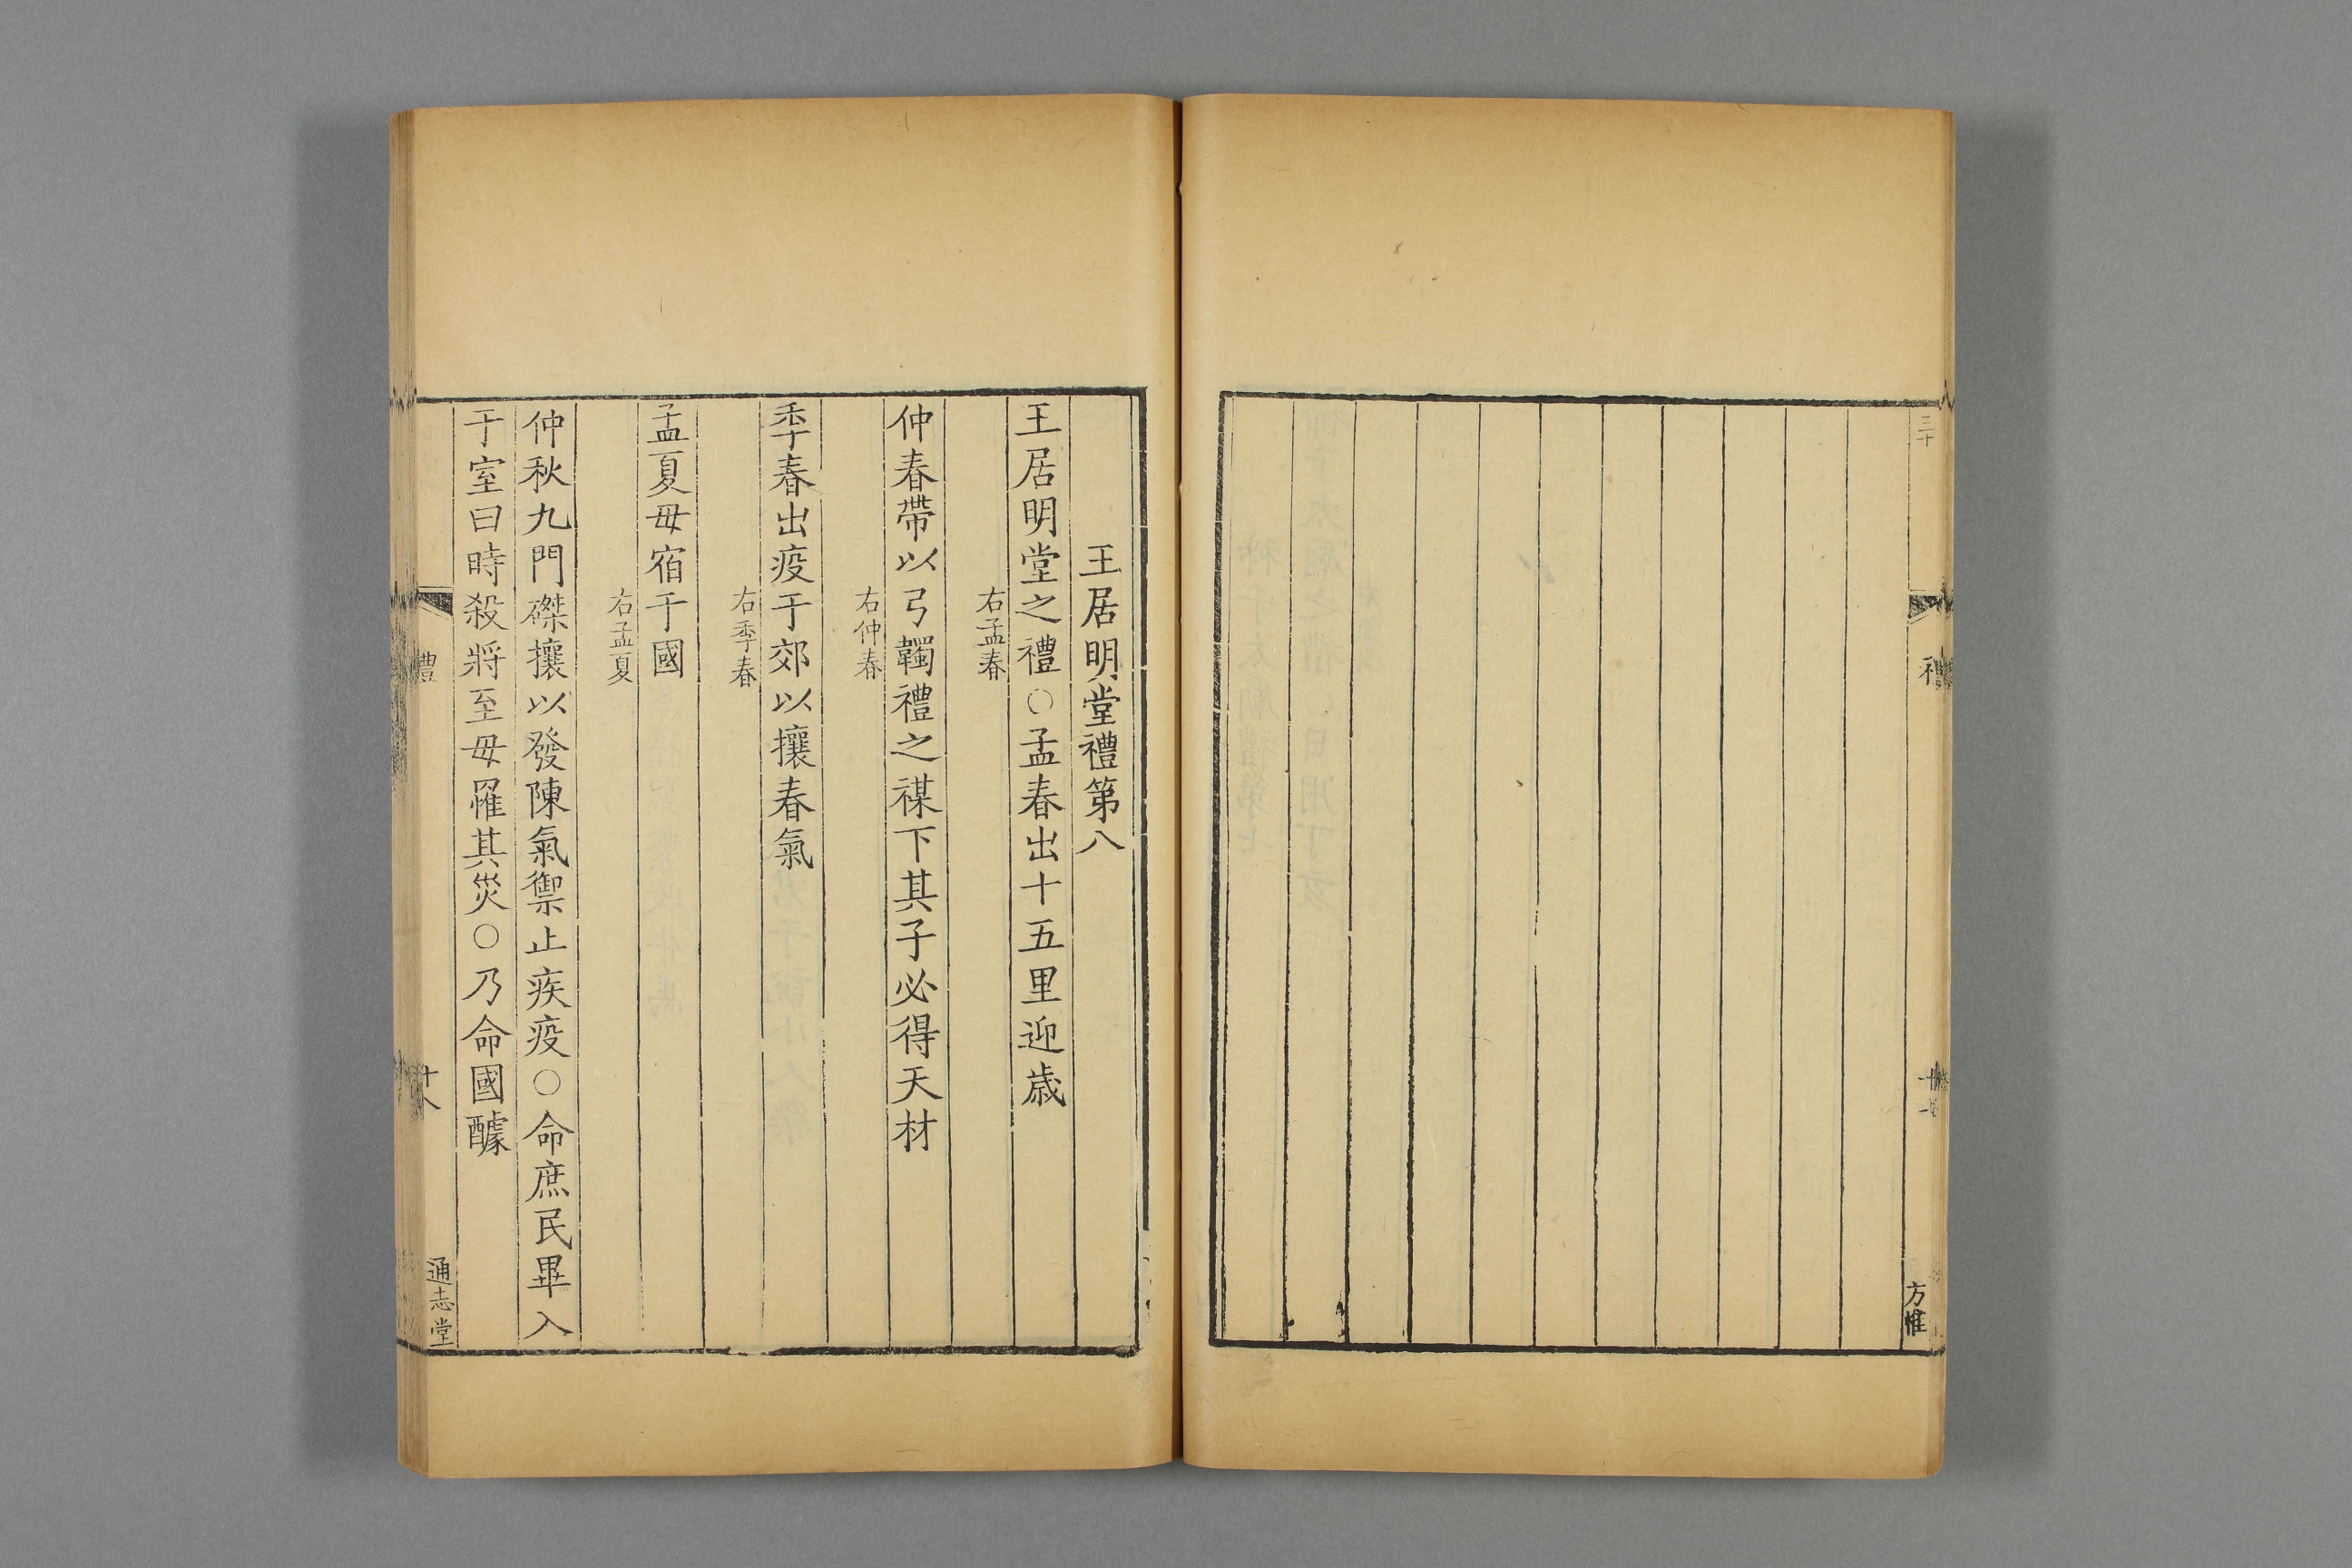 三十
方惟
王居明堂禮第八
王居明堂之禮○孟春出十五里迎歳
右孟春
仲春帶以弓韣禮之禖下其子必得天材
右仲春
季春出疫于郊以攘春氣
右季春
孟夏毋宿于國
右孟夏
仲秋九門磔攘以發陳氣禦止疾疫○命庶民畢入
于室曰時殺將至毋罹其災○乃命國醵
禮
十八
通志堂